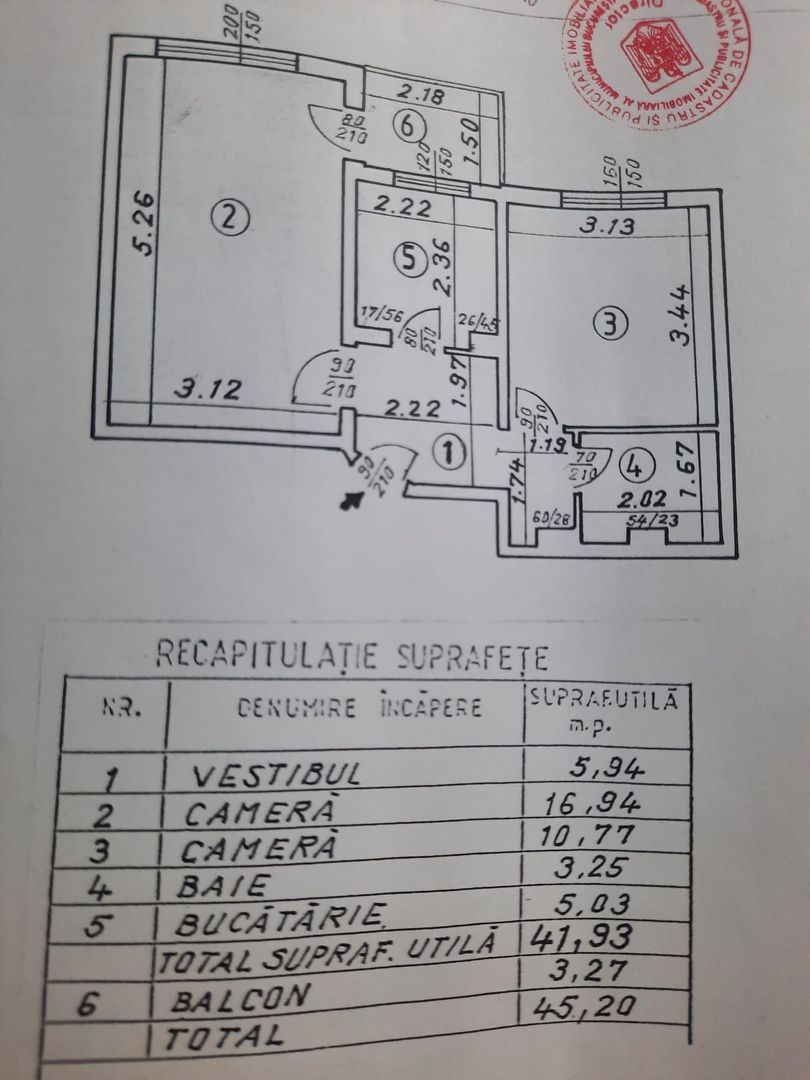 200
150
OFICIUL NAȚIONALĂ DE CADASTRU ȘI PUBLICITATE IMOBILIARĂ
CADASTRU ȘI PUBLICITATE IMOBILIARĂ AL MUNICIPIULUI BUCUREȘTI
Director
2.18
80
210
6
1.50
120
150
160
150
5.26
2
2.22
3.13
5
2.36
3
3.44
17/56
26/45
80
210
90
210
3.12
1.97
2.22
90
210
1
1.19
70
210
4
1.67
90
210
1.74
2.02
60/28
54/23
RECAPITULAȚIE SUPRAFEȚE
NR. DENUMIRE ÎNCĂPERE SUPRAF.UTILĂ
m.p.
1 VESTIBUL 5,94
2 CAMERĂ 16,94
3 CAMERĂ 10,77
4 BAIE 3,25
5 BUCĂTĂRIE 5,03
TOTAL SUPRAF. UTILĂ 41,93
6 BALCON 3,27
TOTAL 45,20